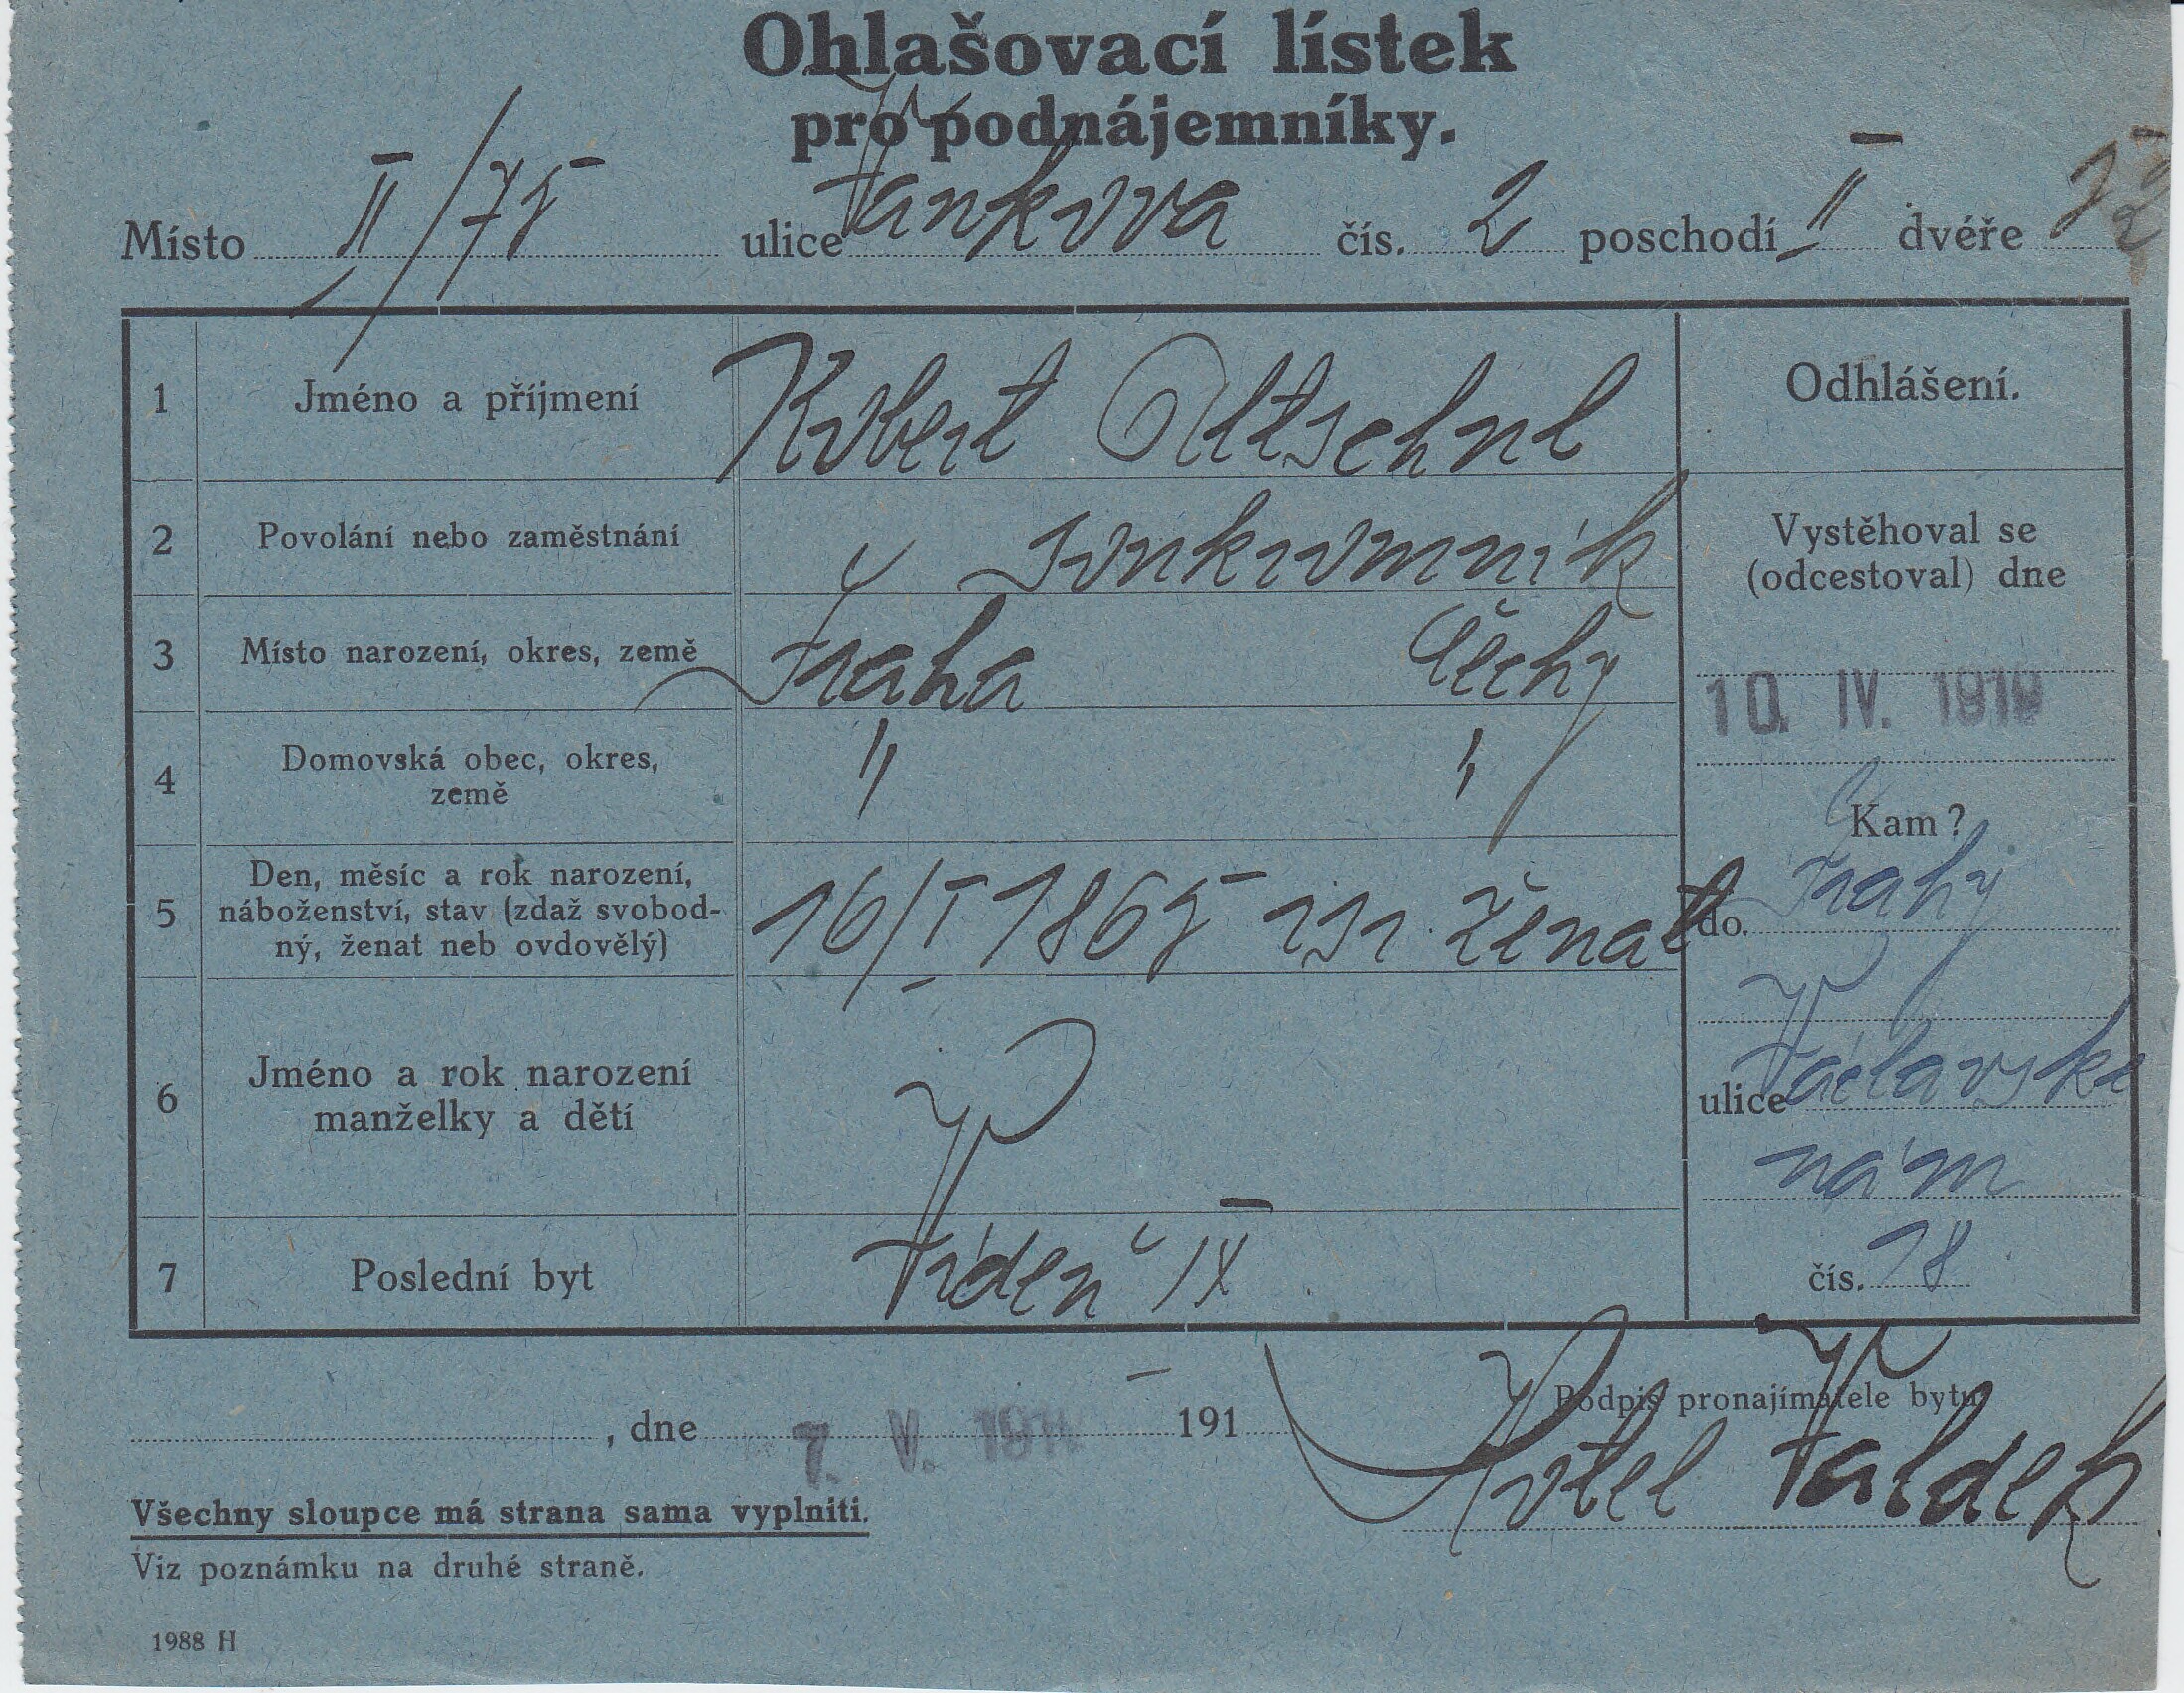 Ohlašovací lístek
pro podnájemníky.
Místo II/75 ulice Vaňkova čís. 2 poschodí II dvéře
1 Jméno a příjmení Robert Altschul
Odhlášení.
2 Povolání nebo zaměstnání soukromník
Vystěhoval se
(odcestoval) dne
3 Místo narození, okres, země Praha Čechy
10. IV. 191
4 Domovská obec, okres,
země " "
Kam?
5 Den, měsíc a rok narození,
náboženství, stav (zdaž svobod-
ný, ženat neb ovdovělý) 16/I 1865 isr. ženat
do Prahy
6 Jméno a rok narození
manželky a dětí
ulice Václavské
nám
7 Poslední byt Vídeň IX
čís. 18
, dne 7. V. 191 191
Podpis pronajímatele bytu
Hotel Valdek
Všechny sloupce má strana sama vyplniti.
Viz poznámku na druhé straně.
1988 H